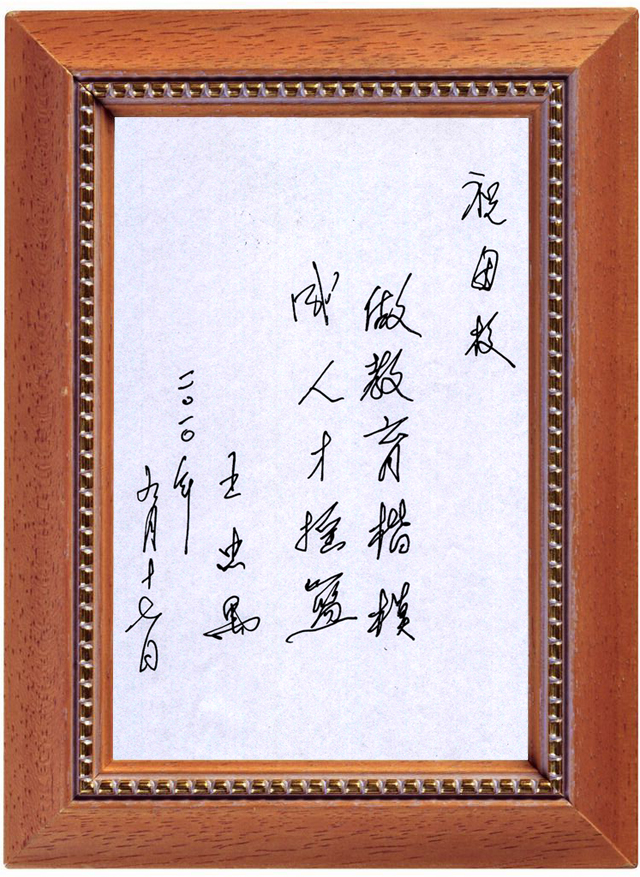 祝母校
做教育楷模
成人才摇篮
王忠
二〇一〇年
九月十七日